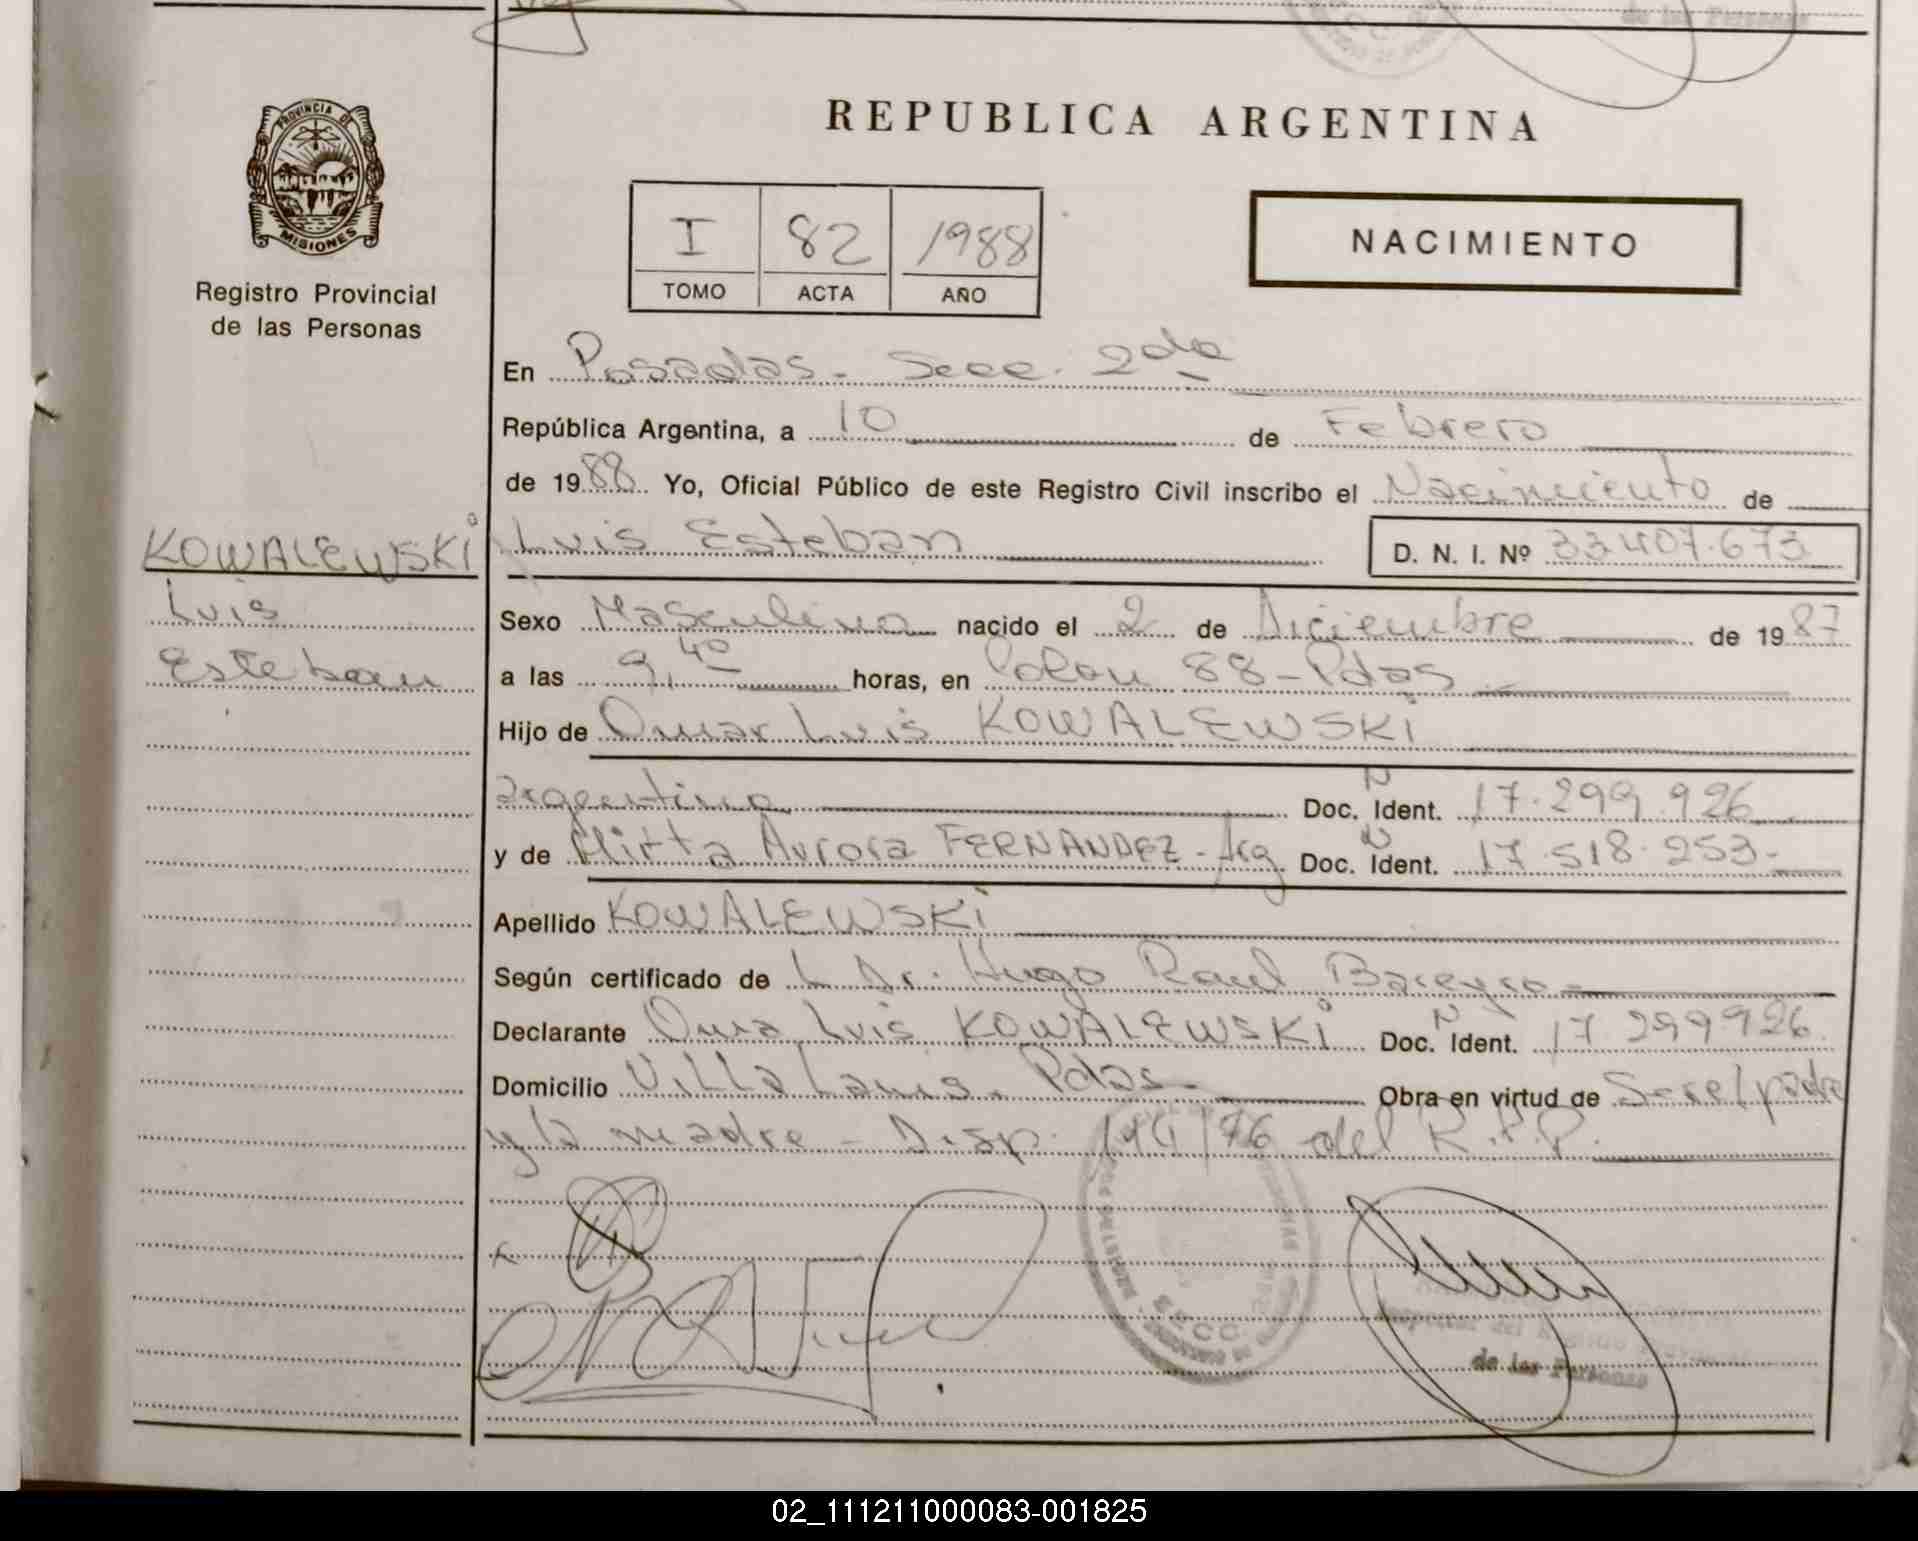 de las Personas
PROVINCIA DE
MISIONES
Registro Provincial
de las Personas
REPUBLICA ARGENTINA
I 82 1988
TOMO ACTA AÑO
NACIMIENTO
En Posadas - Secc. 2da
República Argentina, a 10 de Febrero
de 1988 Yo, Oficial Público de este Registro Civil inscribo el Nacimiento de
KOWALEWSKI
Luis
Esteban
Luis Esteban D. N. I. Nº 33.407.673
Sexo Masculino nacido el 2 de Diciembre de 1987
a las 9,40 horas, en Colon 88 - Pdas
Hijo de Omar Luis KOWALEWSKI
argentino Doc. N Ident. 17.299.926
y de Mirta Aurora FERNANDEZ - Arg Doc. N Ident. 17.518.253-
Apellido KOWALEWSKI
Según certificado de L Dr. Hugo Raul Bareyro -
Declarante Omar Luis KOWALEWSKI Doc. N Ident. 17.299926
Domicilio Villa Lanus. Pdas - Obra en virtud de Ser el padre
y la madre - Disp. /76 del R.P.P.
de las Personas
02_111211000083-001825